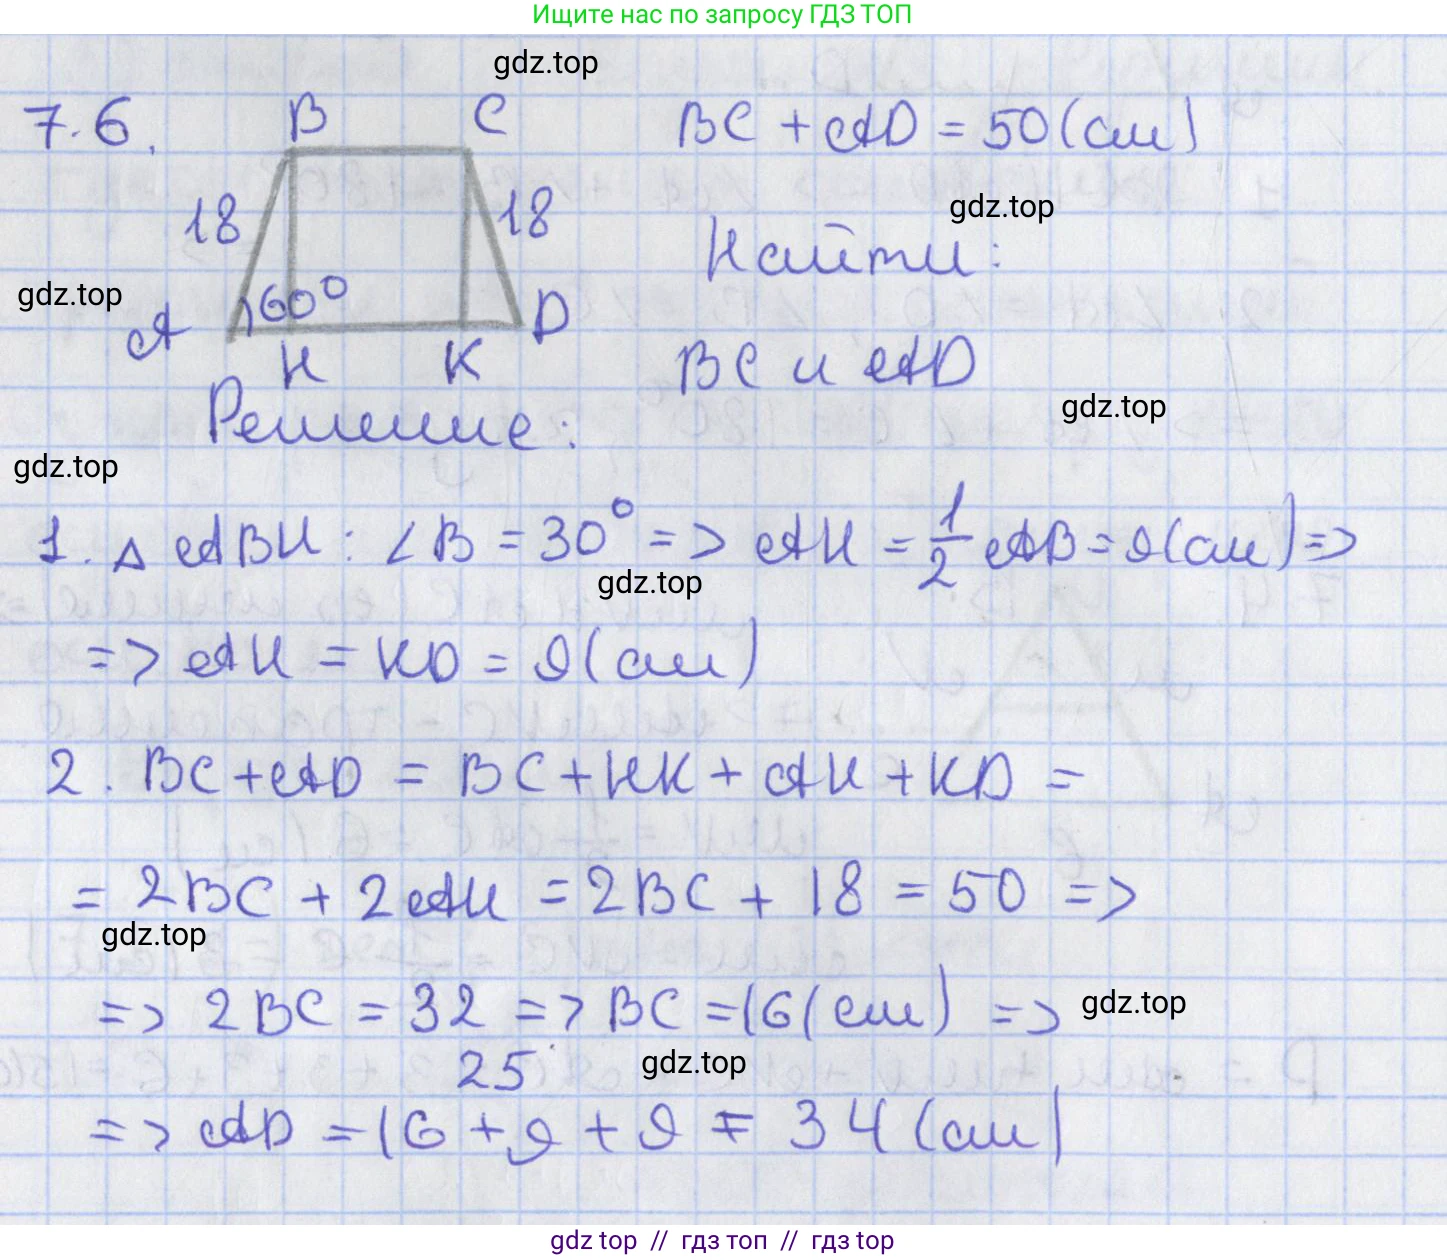 Ищите нас по запросу ГДЗ ТОП
gdz.top
7.6.
B C
BC + AD = 50 (см)
18 18
gdz.top
Найти:
gdz.top
60°
A D
H K
BC и AD
gdz.top
Решение:
gdz.top
1. △ ABH : ∠B = 30° => AH = 1/2 AB = 9 (см) =>
gdz.top
=> AH = KD = 9 (см)
2. BC + AD = BC + HK + AH + KD =
= 2BC + 2AH = 2BC + 18 = 50 =>
gdz.top
=> 2BC = 32 => BC = 16 (см) =>
gdz.top
25
gdz.top
=> AD = 16 + 9 + 9 = 34 (см)
gdz top // гдз топ // гдз top